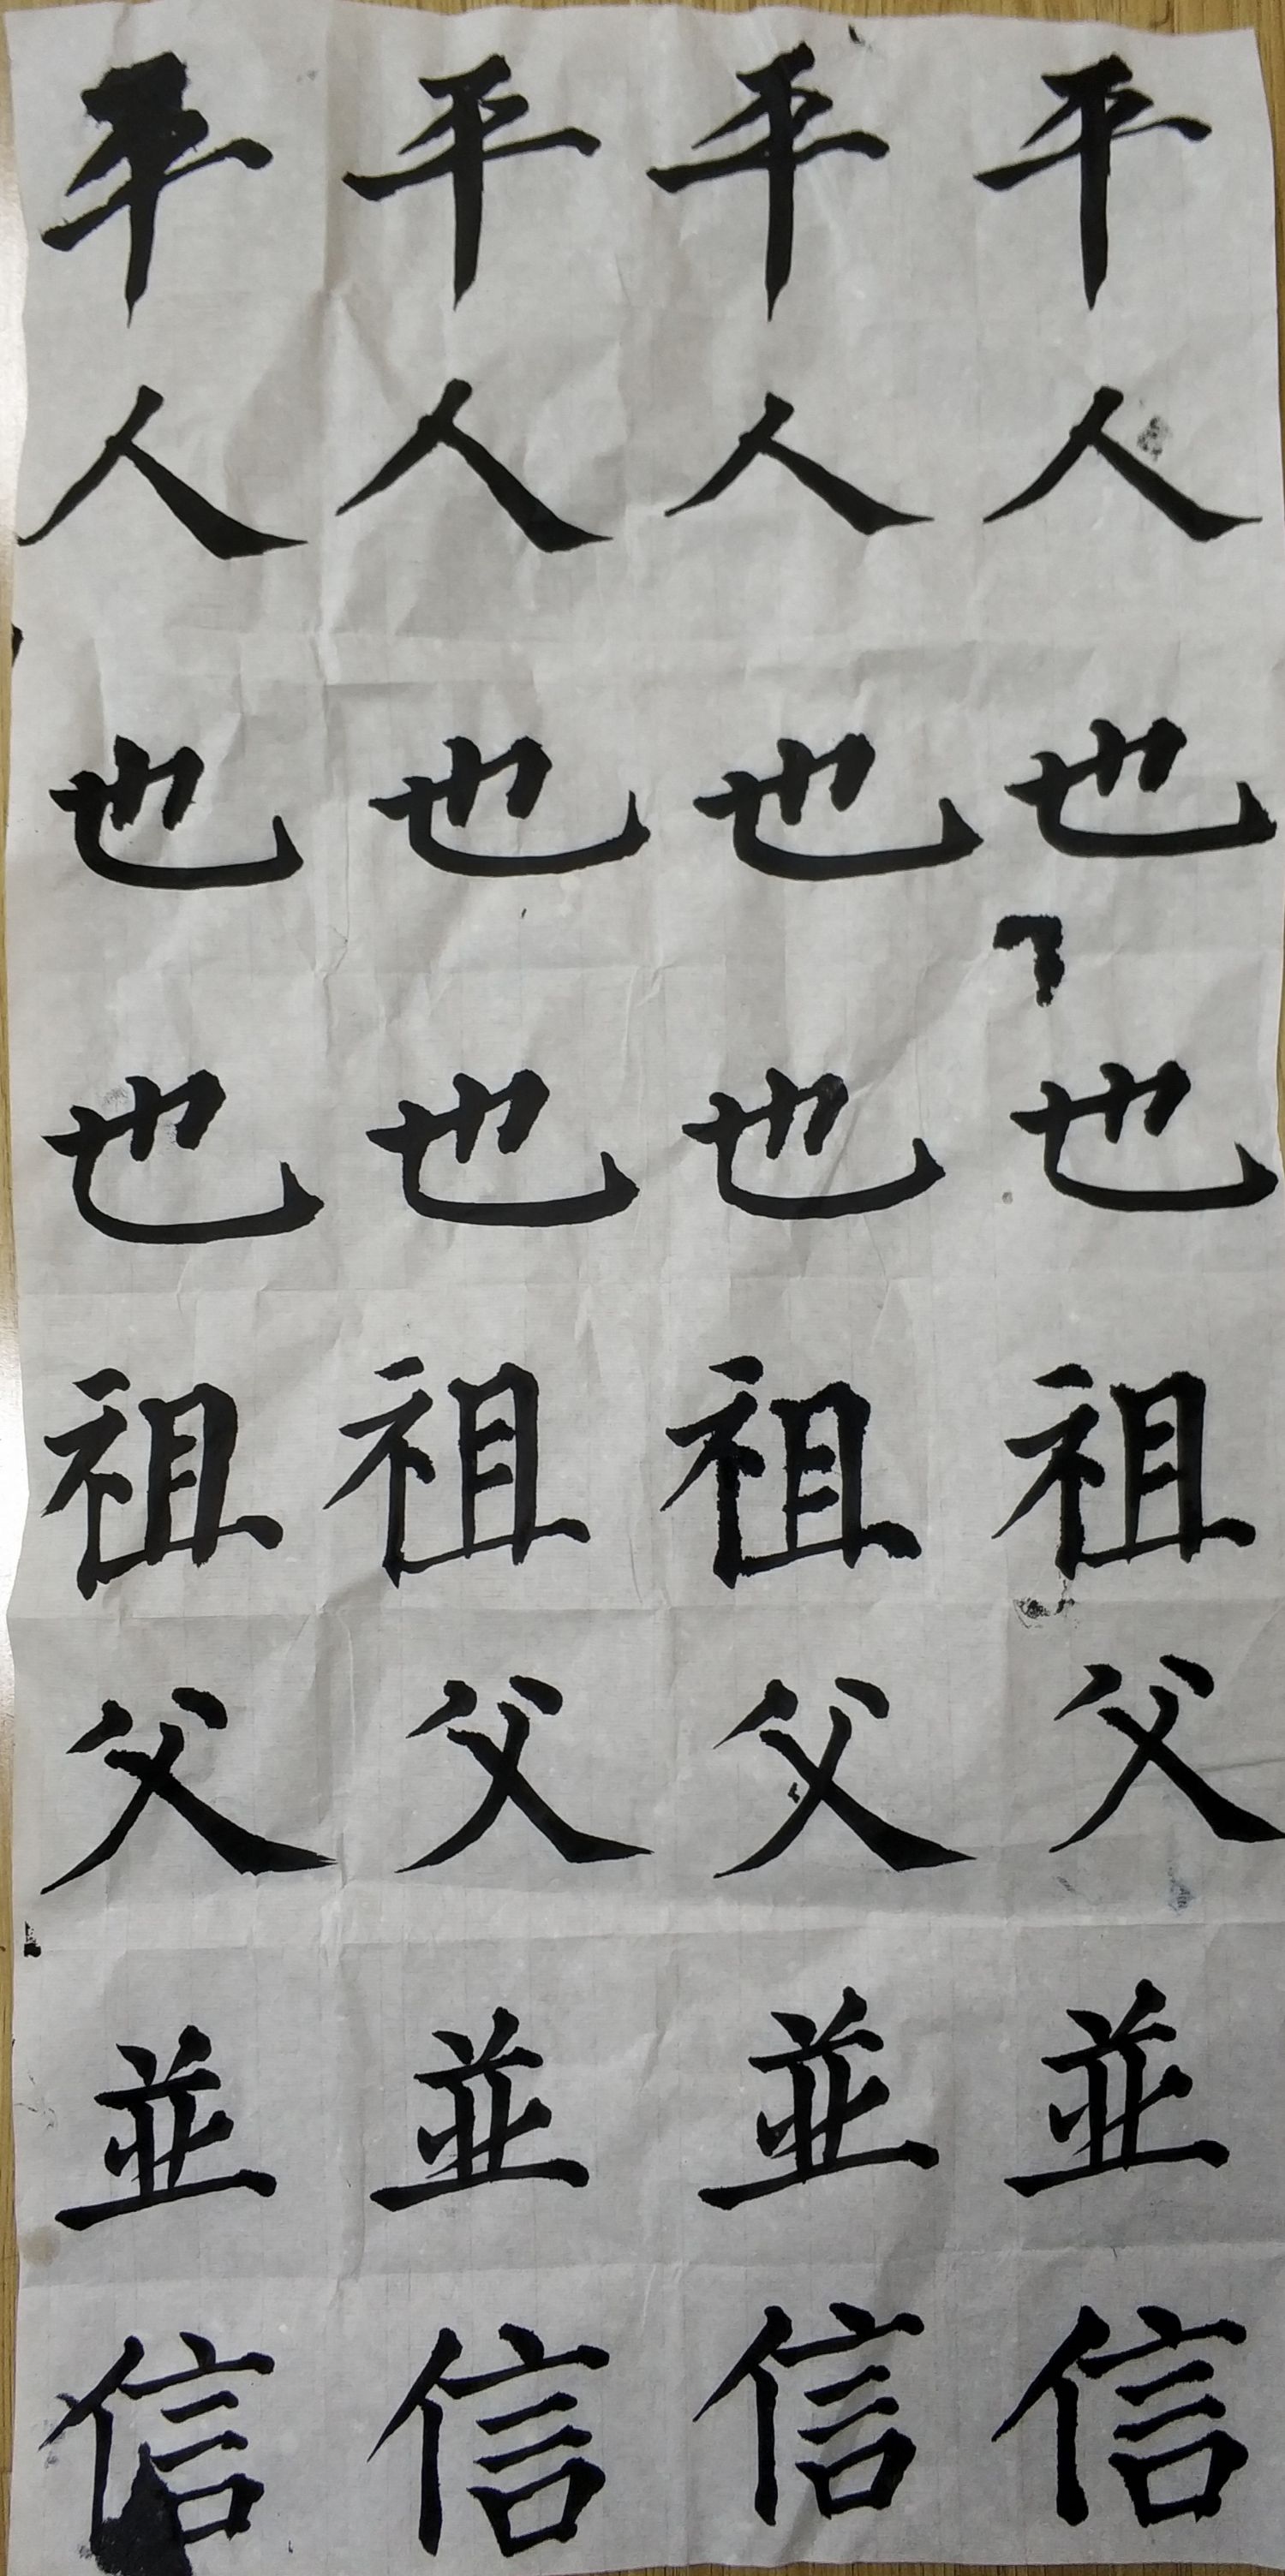 平平平平
人人人人
也也也也
也也也也
祖祖祖祖
父父父父
並並並並
信信信信